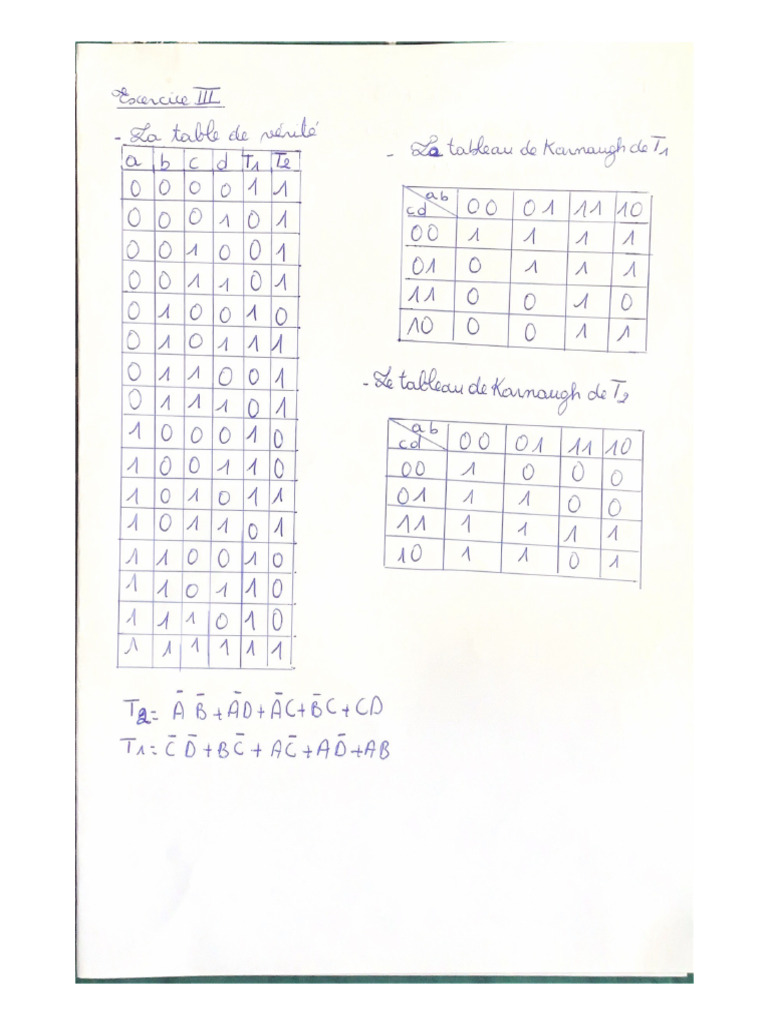 Exercice III
- La table de vérité
a b c d T1 T2
0 0 0 0 1 1
0 0 0 1 0 1
0 0 1 0 0 1
0 0 1 1 0 1
0 1 0 0 1 0
0 1 0 1 1 1
0 1 1 0 0 1
0 1 1 1 0 1
1 0 0 0 1 0
1 0 0 1 1 0
1 0 1 0 1 1
1 0 1 1 0 1
1 1 0 0 1 0
1 1 0 1 1 0
1 1 1 0 1 0
1 1 1 1 1 1
- Le tableau de Karnaugh de T1
ab
cd 00 01 11 10
00 1 1 1 1
01 0 1 1 1
11 0 0 1 0
10 0 0 1 1
- Le tableau de Karnaugh de T2
ab
cd 00 01 11 10
00 1 0 0 0
01 1 1 0 0
11 1 1 1 1
10 1 1 0 1
T2 = A̅ B̅ + A̅D + A̅C + B̅C + CD
T1 = C̅ D̅ + BC̅ + AC̅ + AD̅ + AB